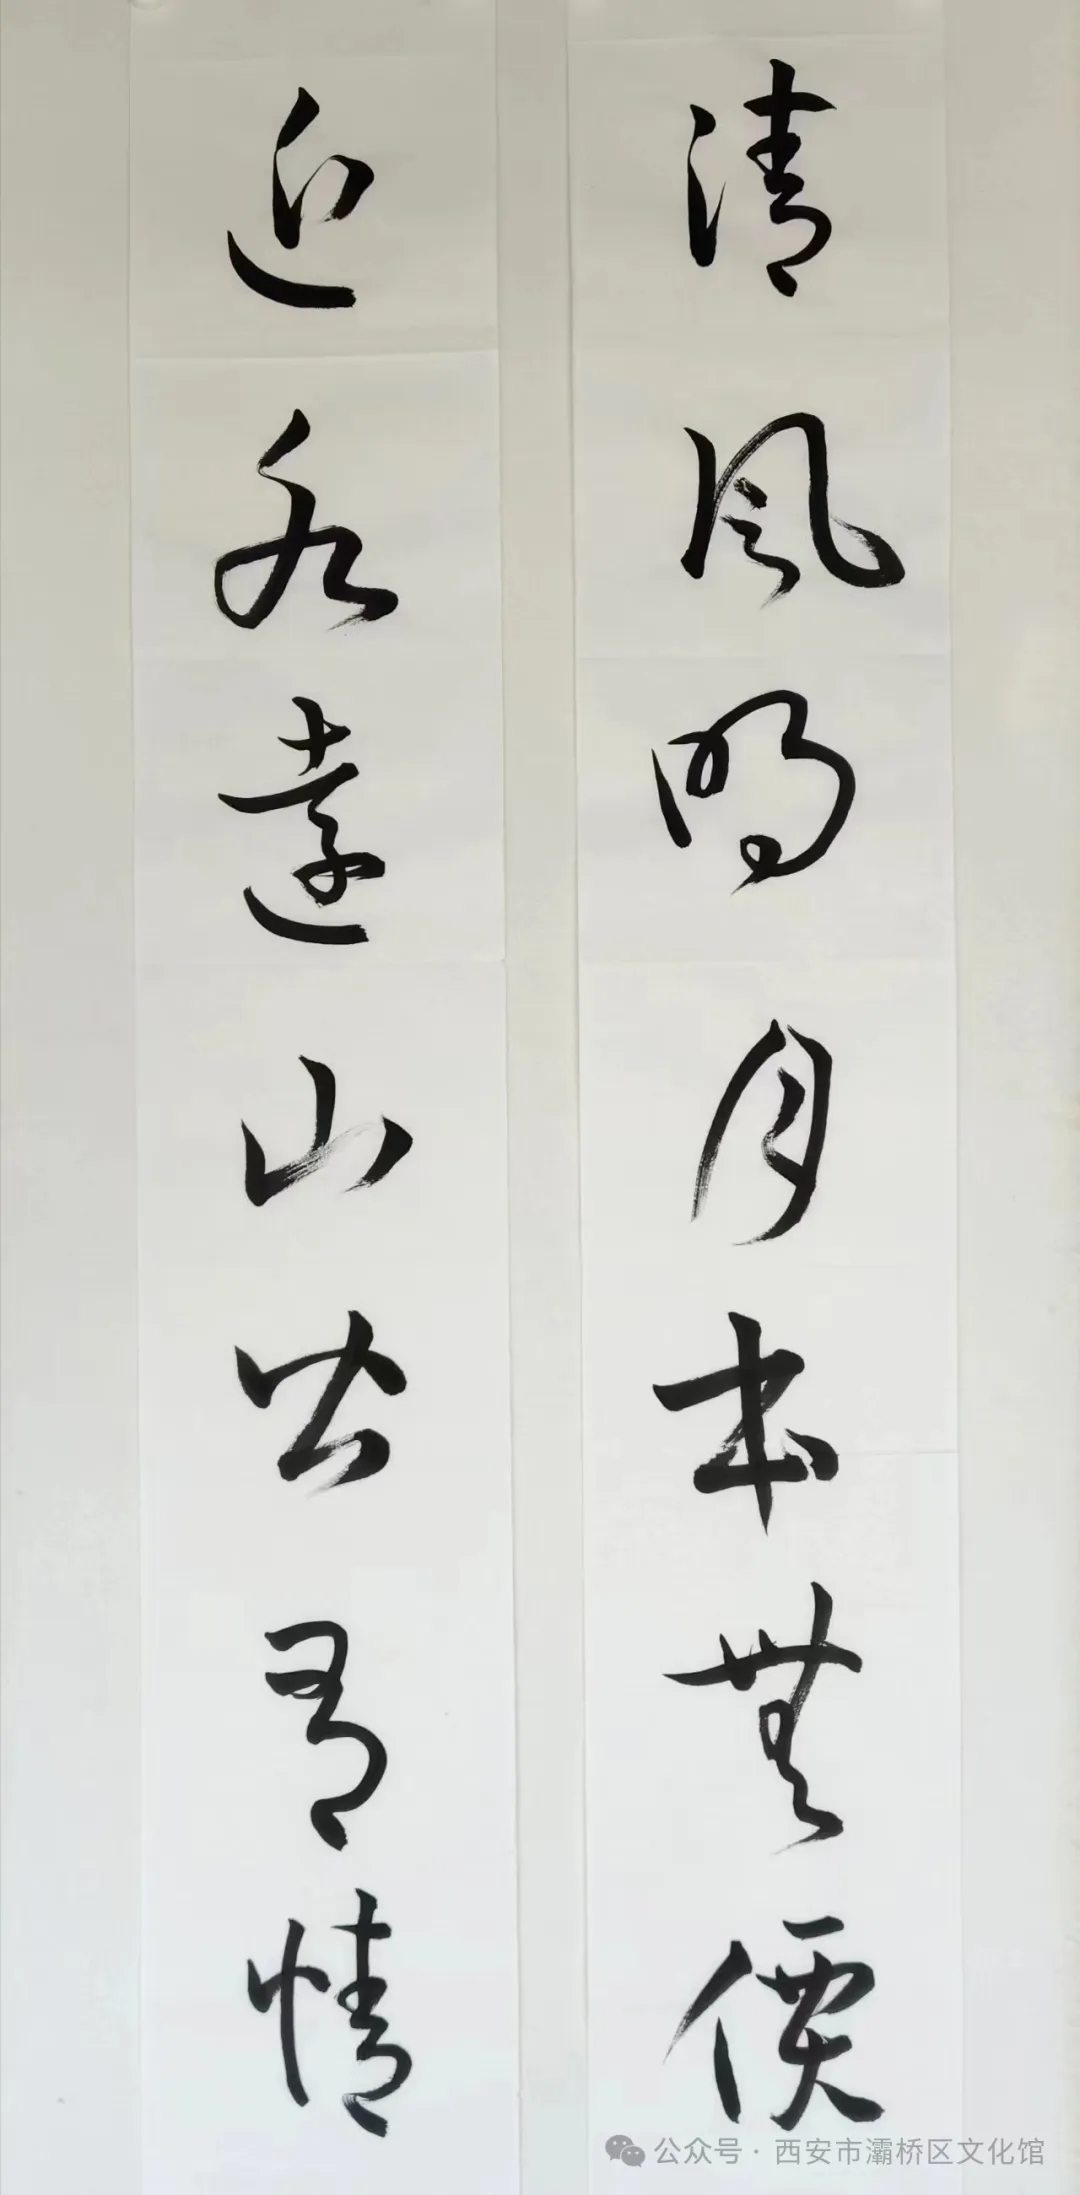 清风明月本無價
近水遠山皆有情
公众号·西安市灞桥区文化馆